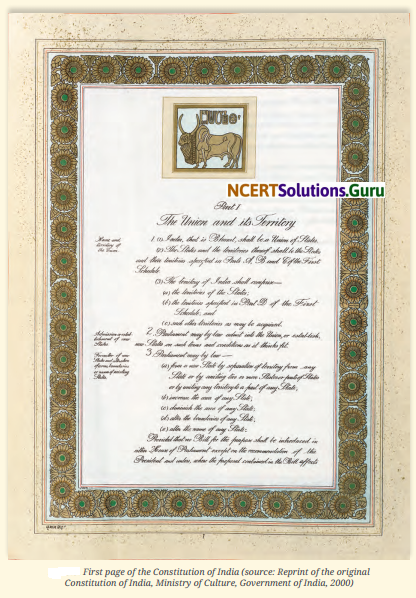 NCERTSolutions.Guru
Part I
The Union and its Territory
Name and
territory of
the Union.
1. (1) India, that is Bharat, shall be a Union of States.
(2) The States and the territories thereof shall be the States
and their territories specified in Parts A, B and C of the First
Schedule.
(3) The territory of India shall comprise—
(a) the territories of the States;
(b) the territories specified in Part D of the First
Schedule; and
(c) such other territories as may be acquired.
Admission or estab-
lishment of new
States.
2. Parliament may by law admit into the Union, or establish,
new States on such terms and conditions as it thinks fit.
Formation of new
States and alteration
of areas, boundaries
or names of existing
States.
3. Parliament may by law—
(a) form a new State by separation of territory from any
State or by uniting two or more States or parts of States
or by uniting any territory to a part of any State;
(b) increase the area of any State;
(c) diminish the area of any State;
(d) alter the boundaries of any State;
(e) alter the name of any State;
Provided that no Bill for the purpose shall be introduced in
either House of Parliament except on the recommendation of the
President and unless, where the proposal contained in the Bill affects
1
First page of the Constitution of India (source: Reprint of the original
Constitution of India, Ministry of Culture, Government of India, 2000)